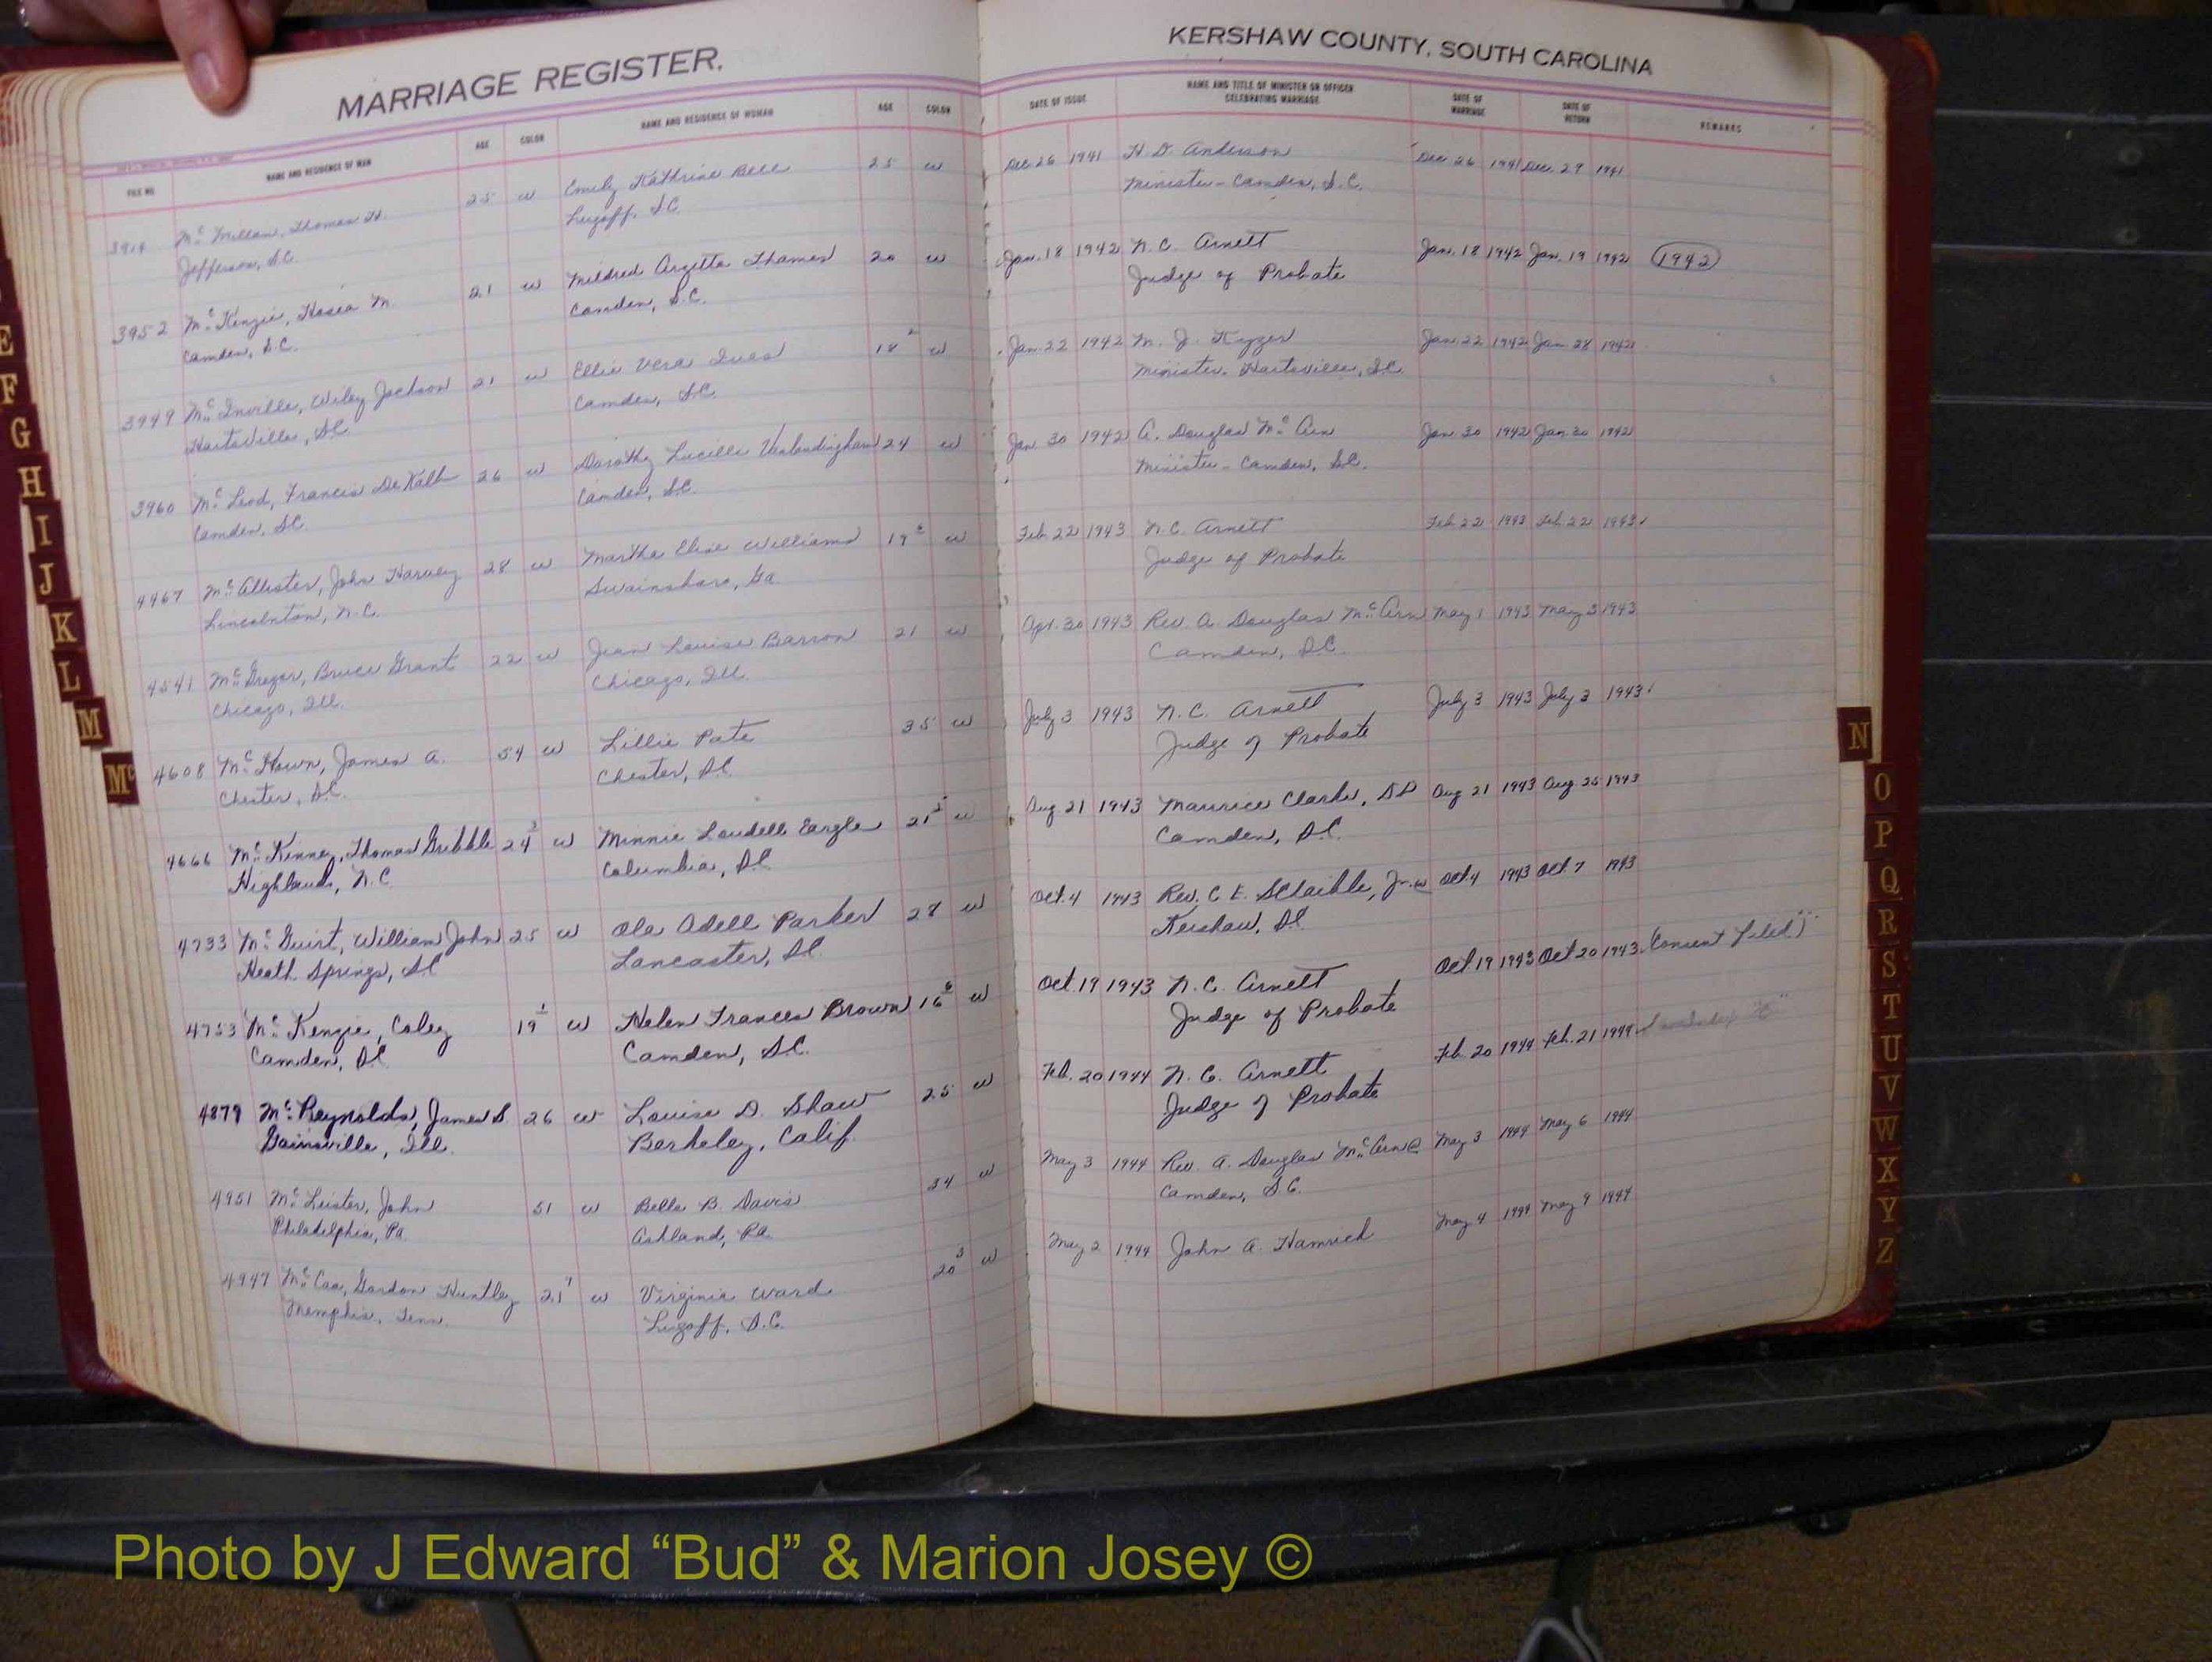 MARRIAGE REGISTER.
FILE NO. NAME AND RESIDENCE OF MAN AGE COLOR NAME AND RESIDENCE OF WOMAN AGE COLOR
3914 Mc Millan, Thomas H. 25 w Emily Kathrine Bell 25 w
Jefferson, S.C. Lugoff, S.C.
3952 Mc Kenzie, Hosea M. 21 w Mildred Argetta Thames 20 w
Camden, S.C. Camden, S.C.
3949 Mc Inville, Wiley Jackson 21 w Ellie Vera Ives 18 w
Hartsville, S.C. Camden, S.C.
3960 Mc Leod, Francis De Kalb 26 w Dorothy Lucille Vanlandingham 24 w
Camden, S.C. Camden, S.C.
4467 Mc Allister, John Harvey 28 w Martha Elise Williams 19 w
Lincolnton, N.C. Swainsboro, Ga
4541 Mc Gregor, Bruce Grant 22 w Jean Louise Barron 21 w
Chicago, Ill. Chicago, Ill.
4608 Mc Hown, James A. 54 w Lillie Pate 35 w
Chester, S.C. Chester, S.C.
4666 Mc Kinney, Thomas Gribble 24 3 w Minnie Loudell Eargle 21 2 w
Highlands, N.C Columbia, S.C
4733 Mc Guirt, William John 25 w Ola Odell Parker 28 w
Heath Springs, S.C Lancaster, S.C.
4753 Mc Kenzie, Coley 19 1 w Helen Frances Brown 16 6 w
Camden, S.C Camden, S.C.
4879 Mc Reynolds, James S. 26 w Louise D. Shaw 25 w
Gainsville, Ill. Berkeley, Calif.
4951 Mc Leister, John 51 w Belle B. Davis 34 w
Philadelphia, Pa. Ashland, Pa.
4947 Mc Caa, Gordon Huntley 21 7 w Virginia Ward 20 3 w
Memphis, Tenn. Lugoff, S.C.
KERSHAW COUNTY, SOUTH CAROLINA
DATE OF ISSUE NAME AND TITLE OF MINISTER OR OFFICER CELEBRATING MARRIAGE DATE OF MARRIAGE DATE OF RETURN REMARKS
Dec. 26 1941 H. D. Anderson Dec 26 1941 Dec. 29 1941
Minister - Camden, S.C.
Jan. 18 1942 N. C. Arnett Jan. 18 1942 Jan. 19 1942 1942
Judge of Probate
Jan. 22 1942 M. J. Kyzer Jan. 22 1942 Jan 28 1942
Minister. Hartsville, S.C.
Jan. 30 1942 A. Douglas Mc Arn Jan 30 1942 Jan 30 1942
Minister - Camden, S.C.
Feb. 22 1943 N.C. Arnett Feb. 22 1943 Feb. 22 1943
Judge of Probate
Apr. 30 1943 Rev. A. Douglas Mc Arn May 1 1943 May 3 1943
Camden, S.C.
July 3 1943 N. C. Arnett July 3 1943 July 3 1943
Judge of Probate
Aug 21 1943 Maurice Clarke, DD Aug 21 1943 Aug. 25 1943
Camden, S.C.
Oct. 4 1943 Rev. C. E. Jr. Oct. 4 1943 Oct. 7 1943
Kershaw, S.C
Oct. 19 1943 N. C. Arnett Oct. 19 1943 Oct 20 1943 (Consent filed)
Judge of Probate
Feb. 20 1944 N. C. Arnett Feb. 20 1944 Feb. 21 1944
Judge of Probate
May 3 1944 Rev. A. Douglas Mc Arn May 3 1944 May 6 1944
Camden, S.C.
May 2 1944 John A. Hamrick May 4 1944 May 9 1944
E
F
G
H
I
J
K
L
M
Mc
N
O
P
Q
R
S
T
U
V
W
X
Y
Z
Photo by J Edward “Bud” & Marion Josey ©